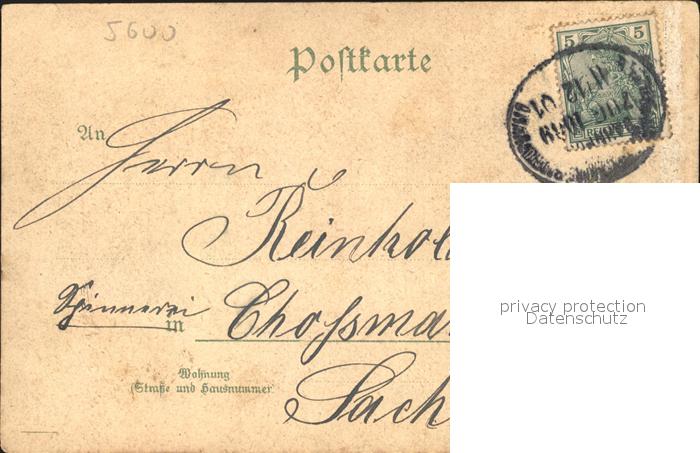 5600
Postkarte
5 5
11 12 01
ZUG 1069
REICHSPOST
An
Herrn
Reinhol
Spinnerei
in Choſsma
Wohnung
(Straße und Hausnummer)
Sach
privacy protection
Datenschutz